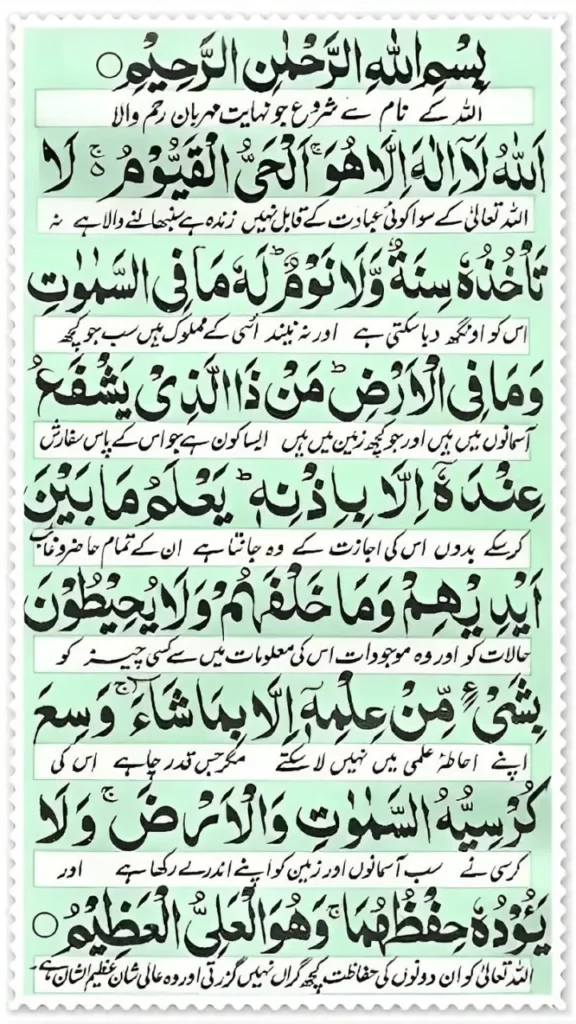 بِسْمِ اللهِ الرَّحْمٰنِ الرَّحِيْمِ ○
اللہ کے نام سے شروع جو نہایت مہربان رحم والا
اَللّٰهُ لَاۤ اِلٰهَ اِلَّا هُوَ ۚ اَلْحَیُّ الْقَیُّوْمُ ۚ لَا
اللہ تعالیٰ کے سوا کوئی عبادت کے قابل نہیں زندہ ہے سنبھالنے والا ہے نہ
تَاْخُذُهٗ سِنَةٌ وَّلَا نَوْمٌ ؕ لَهٗ مَا فِی السَّمٰوٰتِ
اس کو اونگھ دبا سکتی ہے اور نہ نیند اسی کے مملوک ہیں سب جو کچھ
وَمَا فِی الْاَرْضِ ؕ مَنْ ذَا الَّذِیْ یَشْفَعُ
آسمانوں میں ہیں اور جو کچھ زمین میں ہیں ایسا کون ہے جو اس کے پاس سفارش
عِنْدَهٗۤ اِلَّا بِاِذْنِهٖ ؕ یَعْلَمُ مَا بَیْنَ
کرسکے بدوں اس کی اجازت کے وہ جانتا ہے ان کے تمام حاضر و غائب
اَیْدِیْهِمْ وَمَا خَلْفَهُمْ ۚ وَلَا یُحِیْطُوْنَ
حالات کو اور وہ موجودات اس کی معلومات میں سے کسی چیز کو
بِشَیْءٍ مِّنْ عِلْمِهٖۤ اِلَّا بِمَا شَآءَ ۚ وَسِعَ
اپنے احاطۂ علمی میں نہیں لا سکتے مگر جس قدر چاہے اس کی
كُرْسِیُّهُ السَّمٰوٰتِ وَالْاَرْضَ ۚ وَلَا
کرسی نے سب آسمانوں اور زمین کو اپنے اندر لے رکھا ہے اور
یَـُٔوْدُهٗ حِفْظُهُمَا ۚ وَهُوَ الْعَلِیُّ الْعَظِیْمُ ○
اللہ تعالیٰ کو ان دونوں کی حفاظت کچھ گراں نہیں گزرتی اور وہ عالی شان عظیم الشان ہے